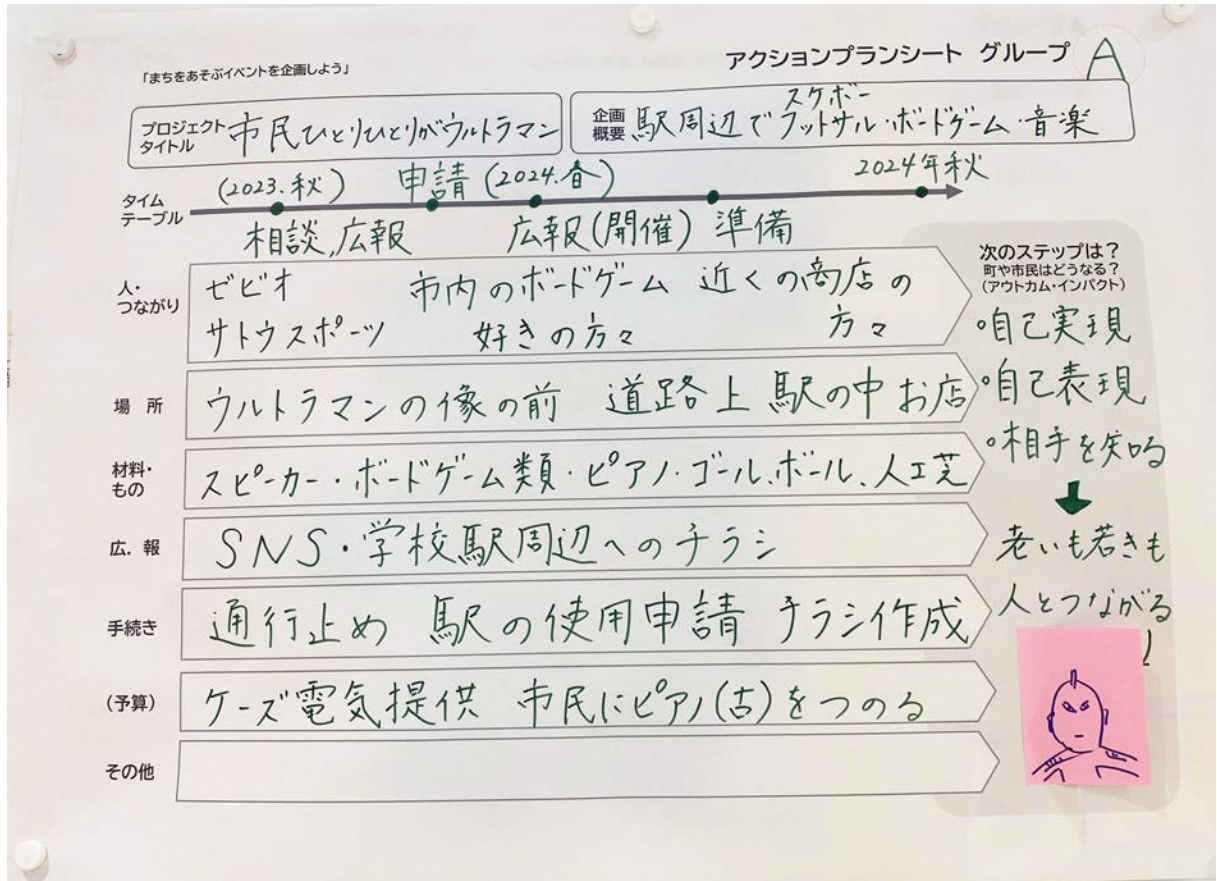 「まちをあそぶイベントを企画しよう」
アクションプランシート グループ A
プロジェクト
タイトル
市民ひとりひとりがウルトラマン
企画
概要
スケボー
駅周辺でフットサル・ボードゲーム・音楽
タイム
テーブル
(2023.秋) 申請 (2024.春) 2024年秋
相談,広報 広報(開催) 準備
人・
つながり
ゼビオ 市内のボードゲーム 近くの商店の
サトウスポーツ 好きの方々 方々
場 所
ウルトラマンの像の前 道路上 駅の中 お店
材料・
もの
スピーカー・ボードゲーム類・ピアノ・ゴール、ボール、人工芝
広. 報
SNS・学校駅周辺へのチラシ
手続き
通行止め 駅の使用申請 チラシ作成
(予算)
ケーズ電気提供 市民にピアノ(古)をつのる
その他
次のステップは?
町や市民はどうなる?
(アウトカム・インパクト)
・自己実現
・自己表現
・相手を知る
老いも若きも
人とつながる